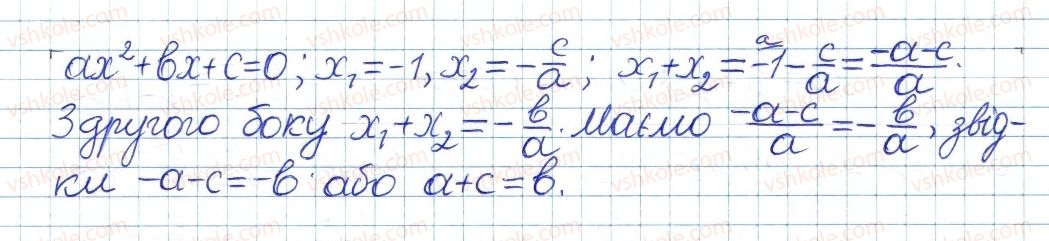 ax²+bx+c=0; x₁=-1, x₂=-c/a; x₁+x₂=-1-c/a=(-a-c)/a.
З другого боку x₁+x₂=-b/a. Маємо (-a-c)/a=-b/a, звід-
ки -a-c=-b або a+c=b.